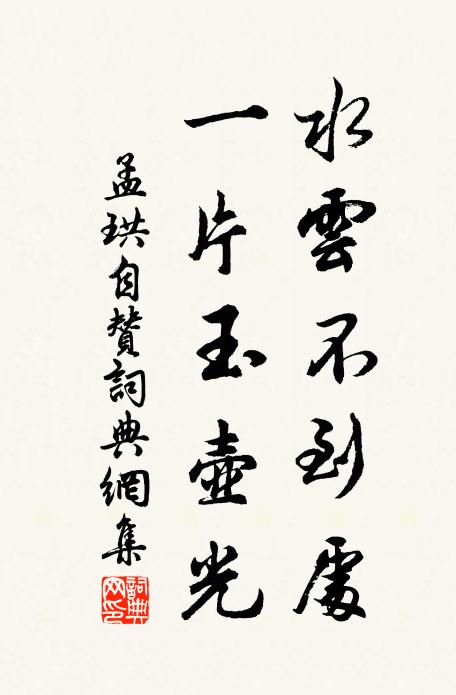 水雲不到處
一片玉壺光
孟珙自贊詞典網集
詞典
网印